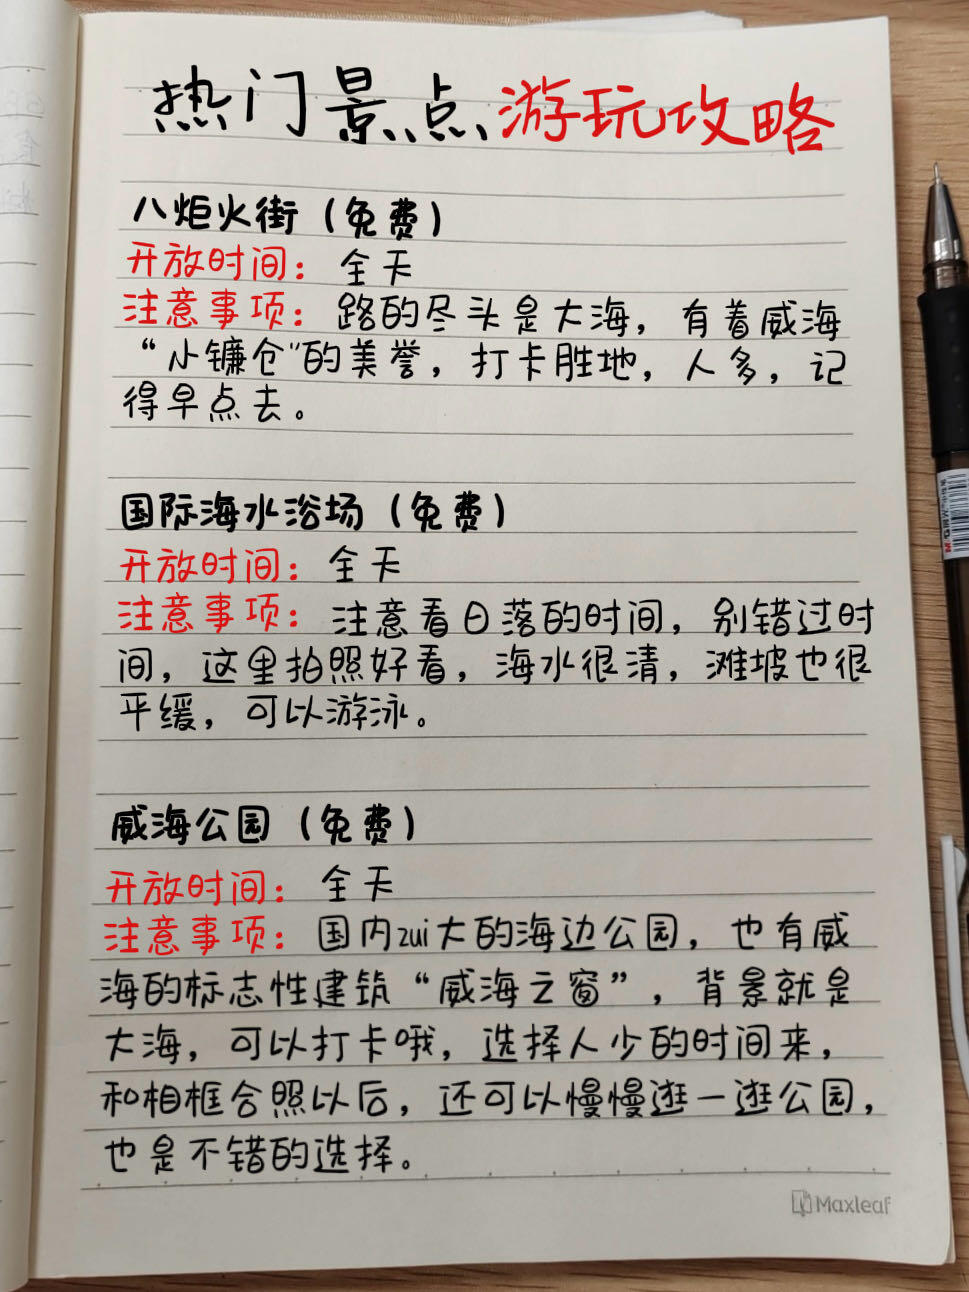 热门景点游玩攻略
八炬火街（免费）
开放时间：全天
注意事项：路的尽头是大海，有着威海
“小镰仓”的美誉，打卡胜地，人多，记
得早点去。
国际海水浴场（免费）
开放时间：全天
注意事项：注意看日落的时间，别错过时
间，这里拍照好看，海水很清，滩坡也很
平缓，可以游泳。
威海公园（免费）
开放时间：全天
注意事项：国内zui大的海边公园，也有威
海的标志性建筑“威海之窗”，背景就是
大海，可以打卡哦，选择人少的时间来，
和相框合照以后，还可以慢慢逛一逛公园，
也是不错的选择。
Maxleaf